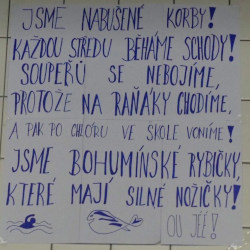 JSME NABUŠENÉ KORBY!
KAŽDOU STŘEDU BĚHÁME SCHODY!
SOUPEŘŮ SE NEBOJÍME,
PROTOŽE NA RAŇÁKY CHODÍME,
A PAK PO CHLÓRU VE ŠKOLE VONÍME!
JSME BOHUMÍNSKÉ RYBIČKY,
KTERÉ MAJÍ SILNÉ NOŽIČKY!
OU JÉÉ!